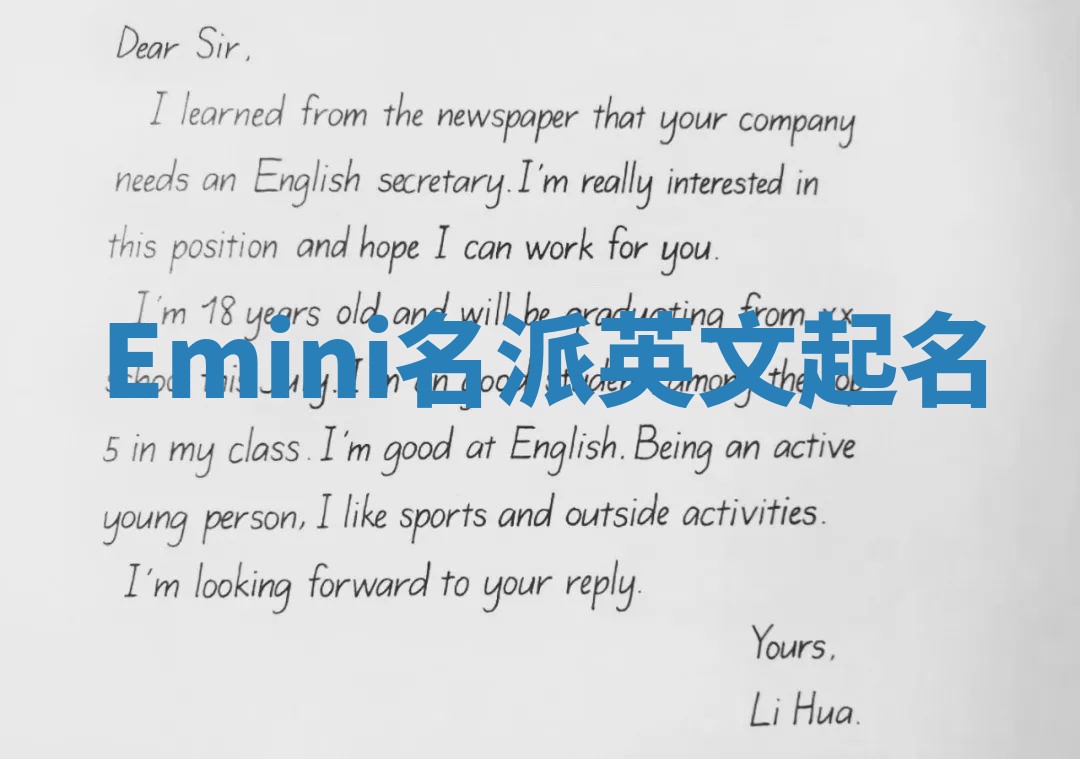 Dear Sir,
I learned from the newspaper that your company
needs an English secretary. I'm really interested in
this position and hope I can work for you.
I'm 18 years old and will be graduating from xx
Emini名派英文起名
school this July. I'm an good student among the top
5 in my class. I'm good at English. Being an active
young person, I like sports and outside activities.
I'm looking forward to your reply.
Yours,
Li Hua.